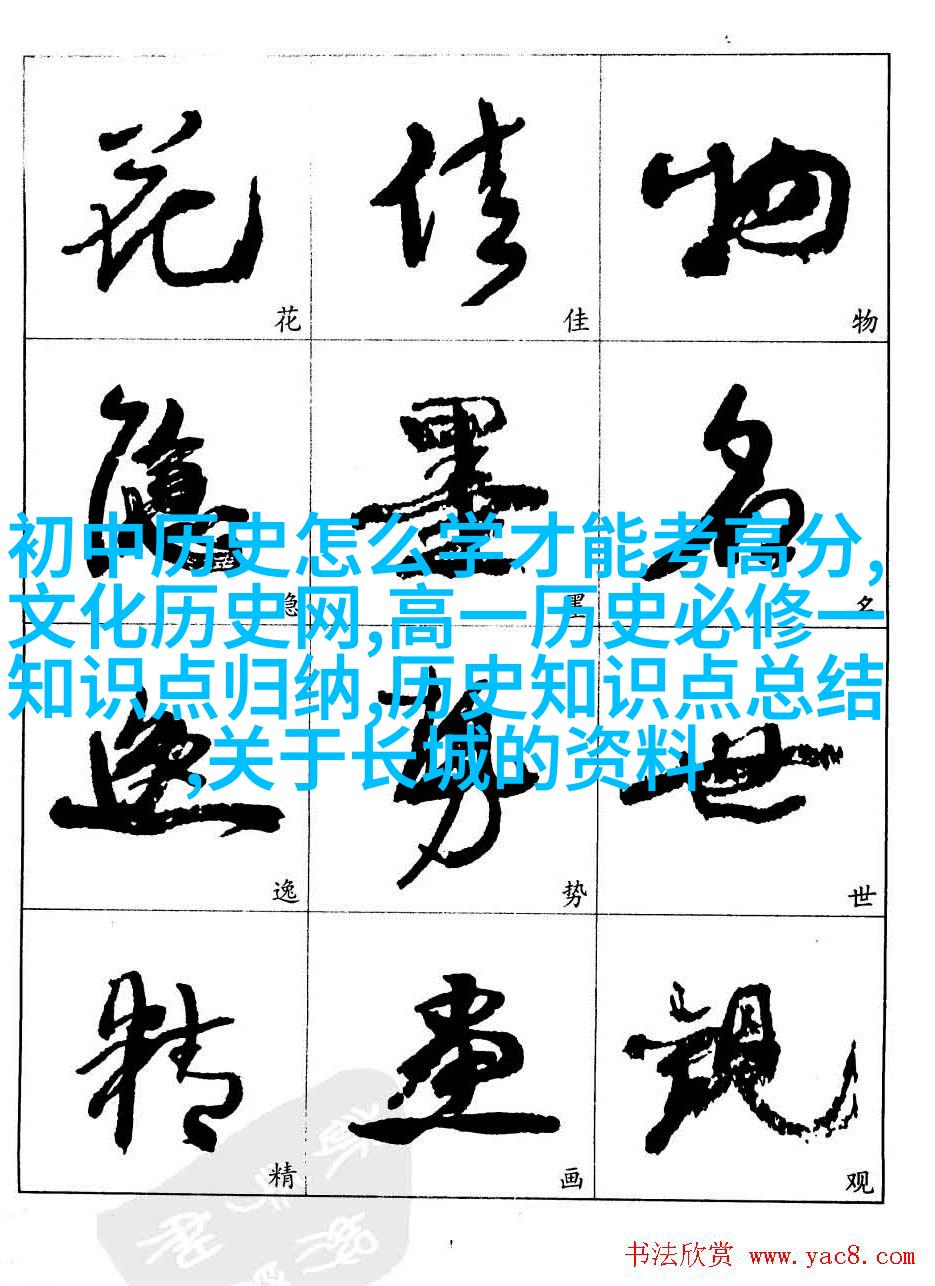 花 佳 物
花 佳 物
隐 墨 名
隐 墨 名
初中历史怎么学才能考高分,
文化历史网,高一历史必修一
知识点归纳,历史知识点总结
,关于长城的资料
逸 势 世
逸 势 世
精 画 观
精 画 观
书法欣赏 www.yac8.com